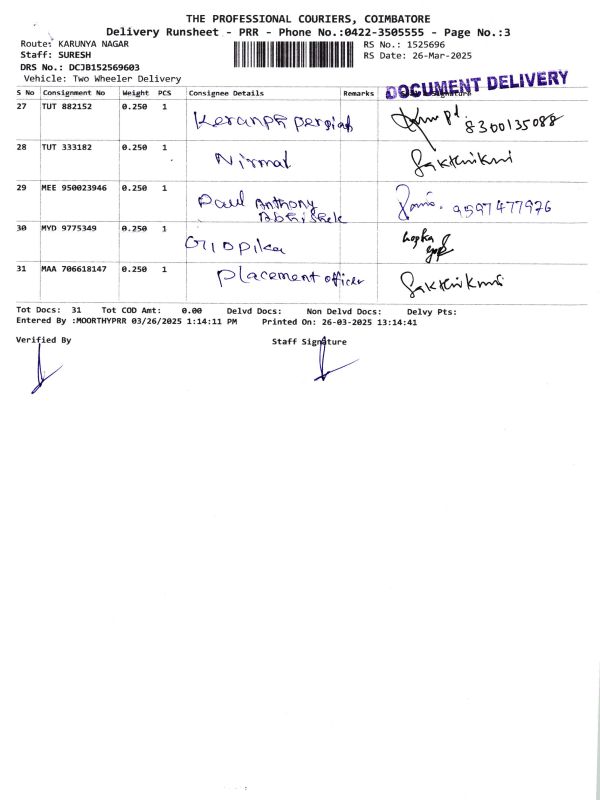 THE PROFESSIONAL COURIERS, COIMBATORE
Delivery Runsheet - PRR - Phone No.:0422-3505555 - Page No.:3
Route: KARUNYA NAGAR
RS No.: 1525696
Staff: SURESH
RS Date: 26-Mar-2025
DRS No.: DCJB152569603
Vehicle: Two Wheeler Delivery
DOCUMENT DELIVERY
S No Consignment No Weight PCS Consignee Details Remarks
27 TUT 882152 0.250 1 8300135088
28 TUT 333182 0.250 1 Nirmal
29 MEE 950023946 0.250 1 Paul Anthony 9597477926
Abhishek
30 MYD 9775349 0.250 1
31 MAA 706618147 0.250 1 Placement officer
Tot Docs: 31 Tot COD Amt: 0.00 Delvd Docs: Non Delvd Docs: Delvy Pts:
Entered By :MOORTHYPRR 03/26/2025 1:14:11 PM Printed On: 26-03-2025 13:14:41
Verified By Staff Signature